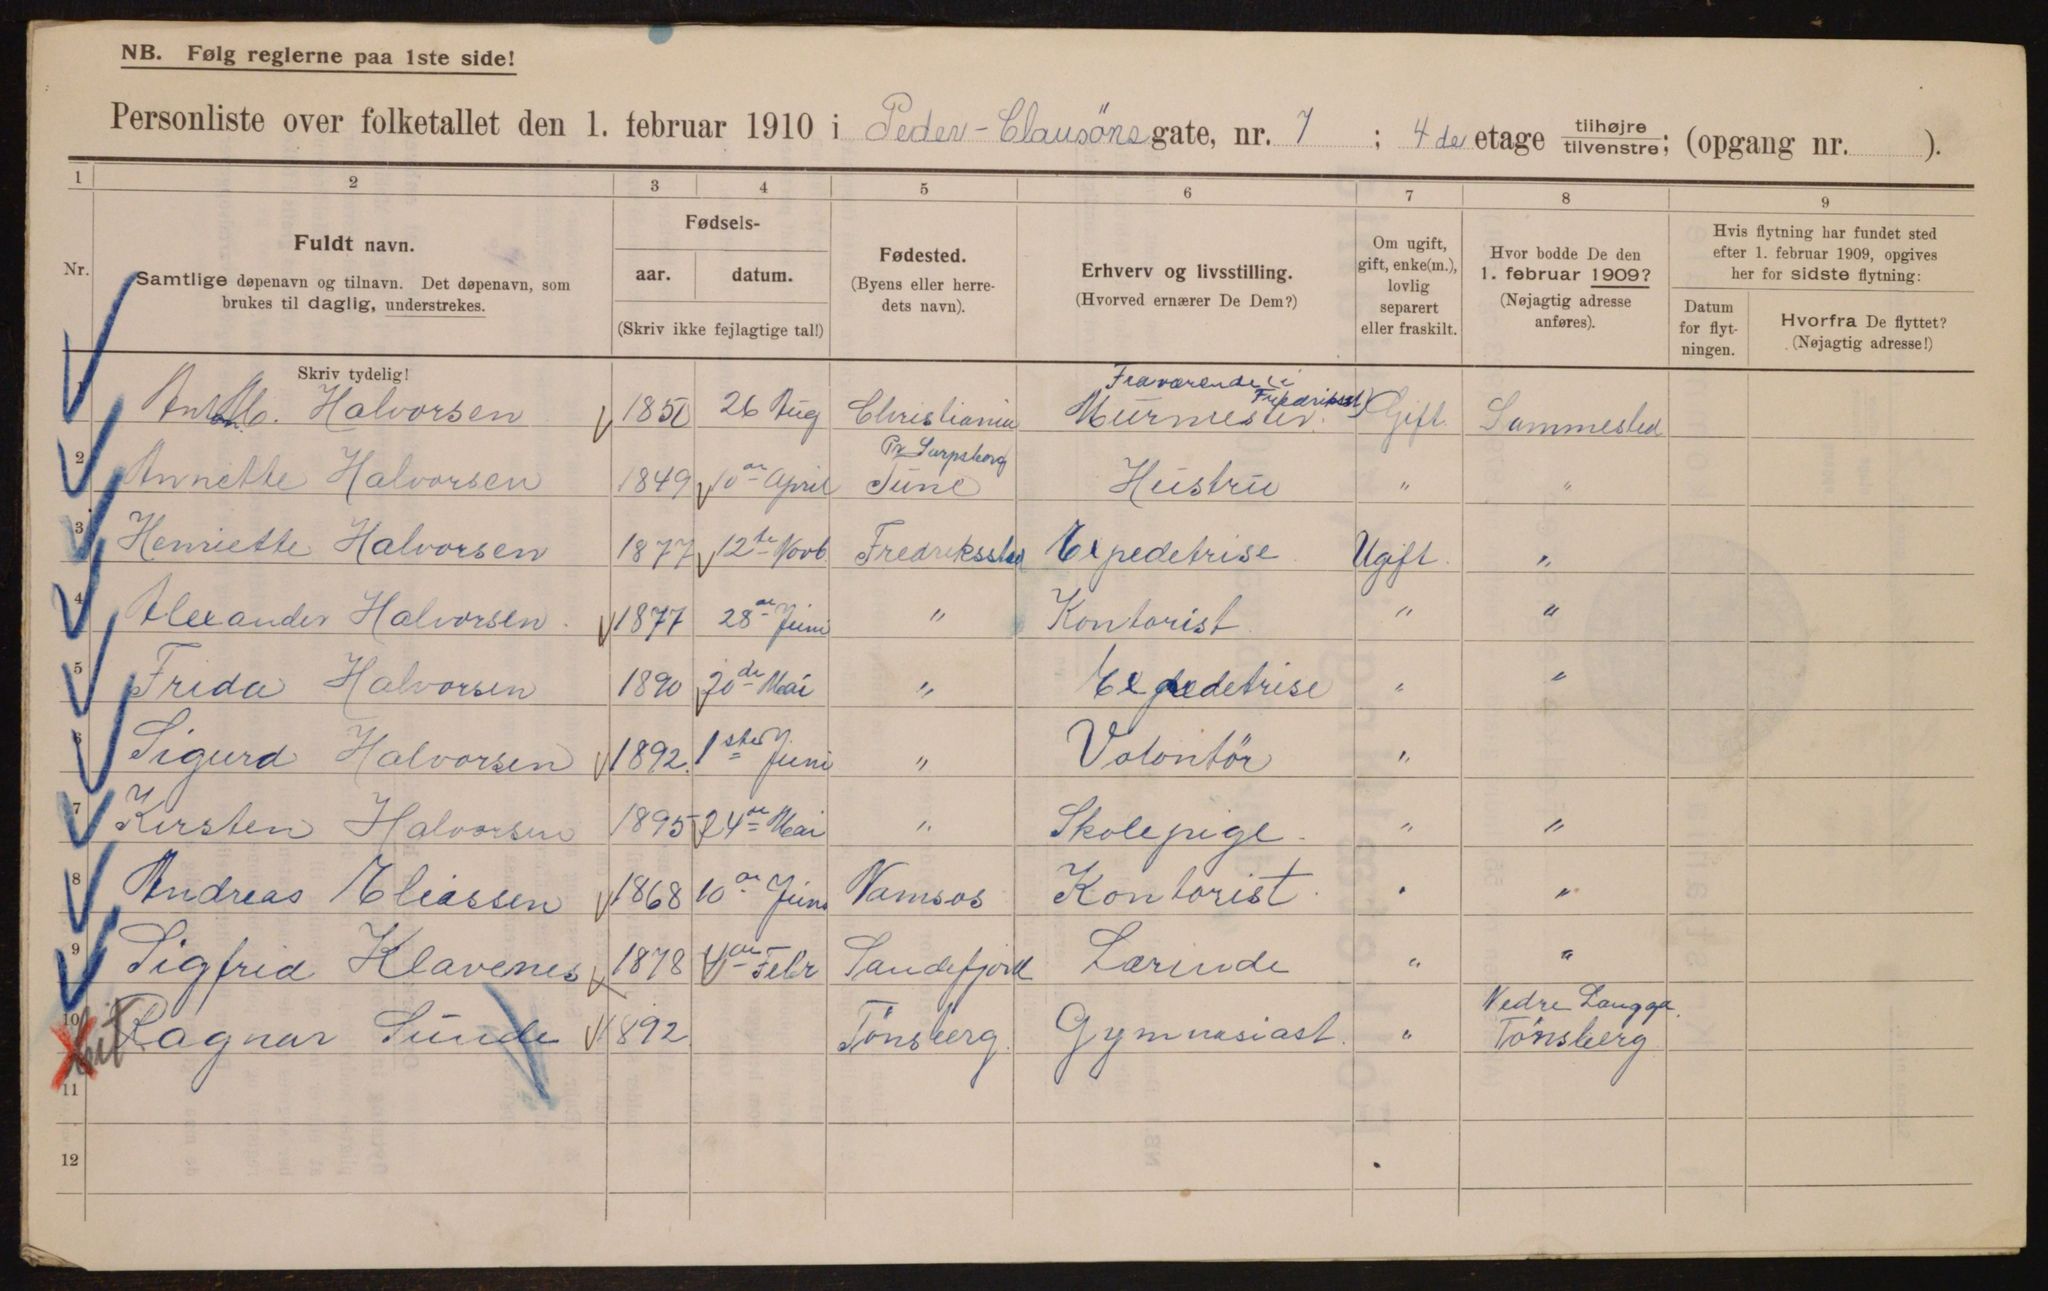 NB. Følg reglerne paa 1ste side!
Personliste over folketallet den 1. februar 1910 i Peder-Clausöns gate, nr. 7 ; 4de etage tilhøjre/tilvenstre; (opgang nr. ).
1 2 3 4 5 6 7 8 9
Nr.
Fuldt navn.
Samtlige døpenavn og tilnavn. Det døpenavn, som
brukes til daglig, understrekes.
Fødsels-
aar. datum.
(Skriv ikke fejlagtige tal!)
Fødested.
(Byens eller herre-
dets navn).
Erhverv og livsstilling.
(Hvorved ernærer De Dem?)
Om ugift,
gift, enke(m.),
lovlig
separert
eller fraskilt.
Hvor bodde De den
1. februar 1909?
(Nøjagtig adresse
anføres).
Hvis flytning har fundet sted
efter 1. februar 1909, opgives
her for sidste flytning:
Datum
for flyt-
ningen.
Hvorfra De flyttet?
(Nøjagtig adresse!)
Skriv tydelig!
Fraværende i
Fredriksst)
1 Halvorsen 1850 26 Aug Christiania Murmester. Gift. Sammested
Pr Sarpsborg
2 Annette Halvorsen 1849 10de April Tune Hustru " "
3 Henriette Halvorsen 1877 12te Novb. Fredriksstad Expedetrise Ugift. "
4 Alexander Halvorsen. 1877 28de Juni " Kontorist " "
5 Frida Halvorsen 1890 20de Mai " Expedetrise " "
6 Sigurd Halvorsen 1892. 1ste Juni " Volontör "
7 Kirsten Halvorsen 1895 24de Mai " Skolepige. " "
8 Andreas Eliassen 1868 10de Juni Namsos Kontorist. " "
9 Sigfrid Klavenes 1878 4de Febr Sandefjord Lærinde " "
Nedre Langga.
10 Ragnar Sunde 1892 Tönsberg. Gymnasiast. " Tönsberg
11
12